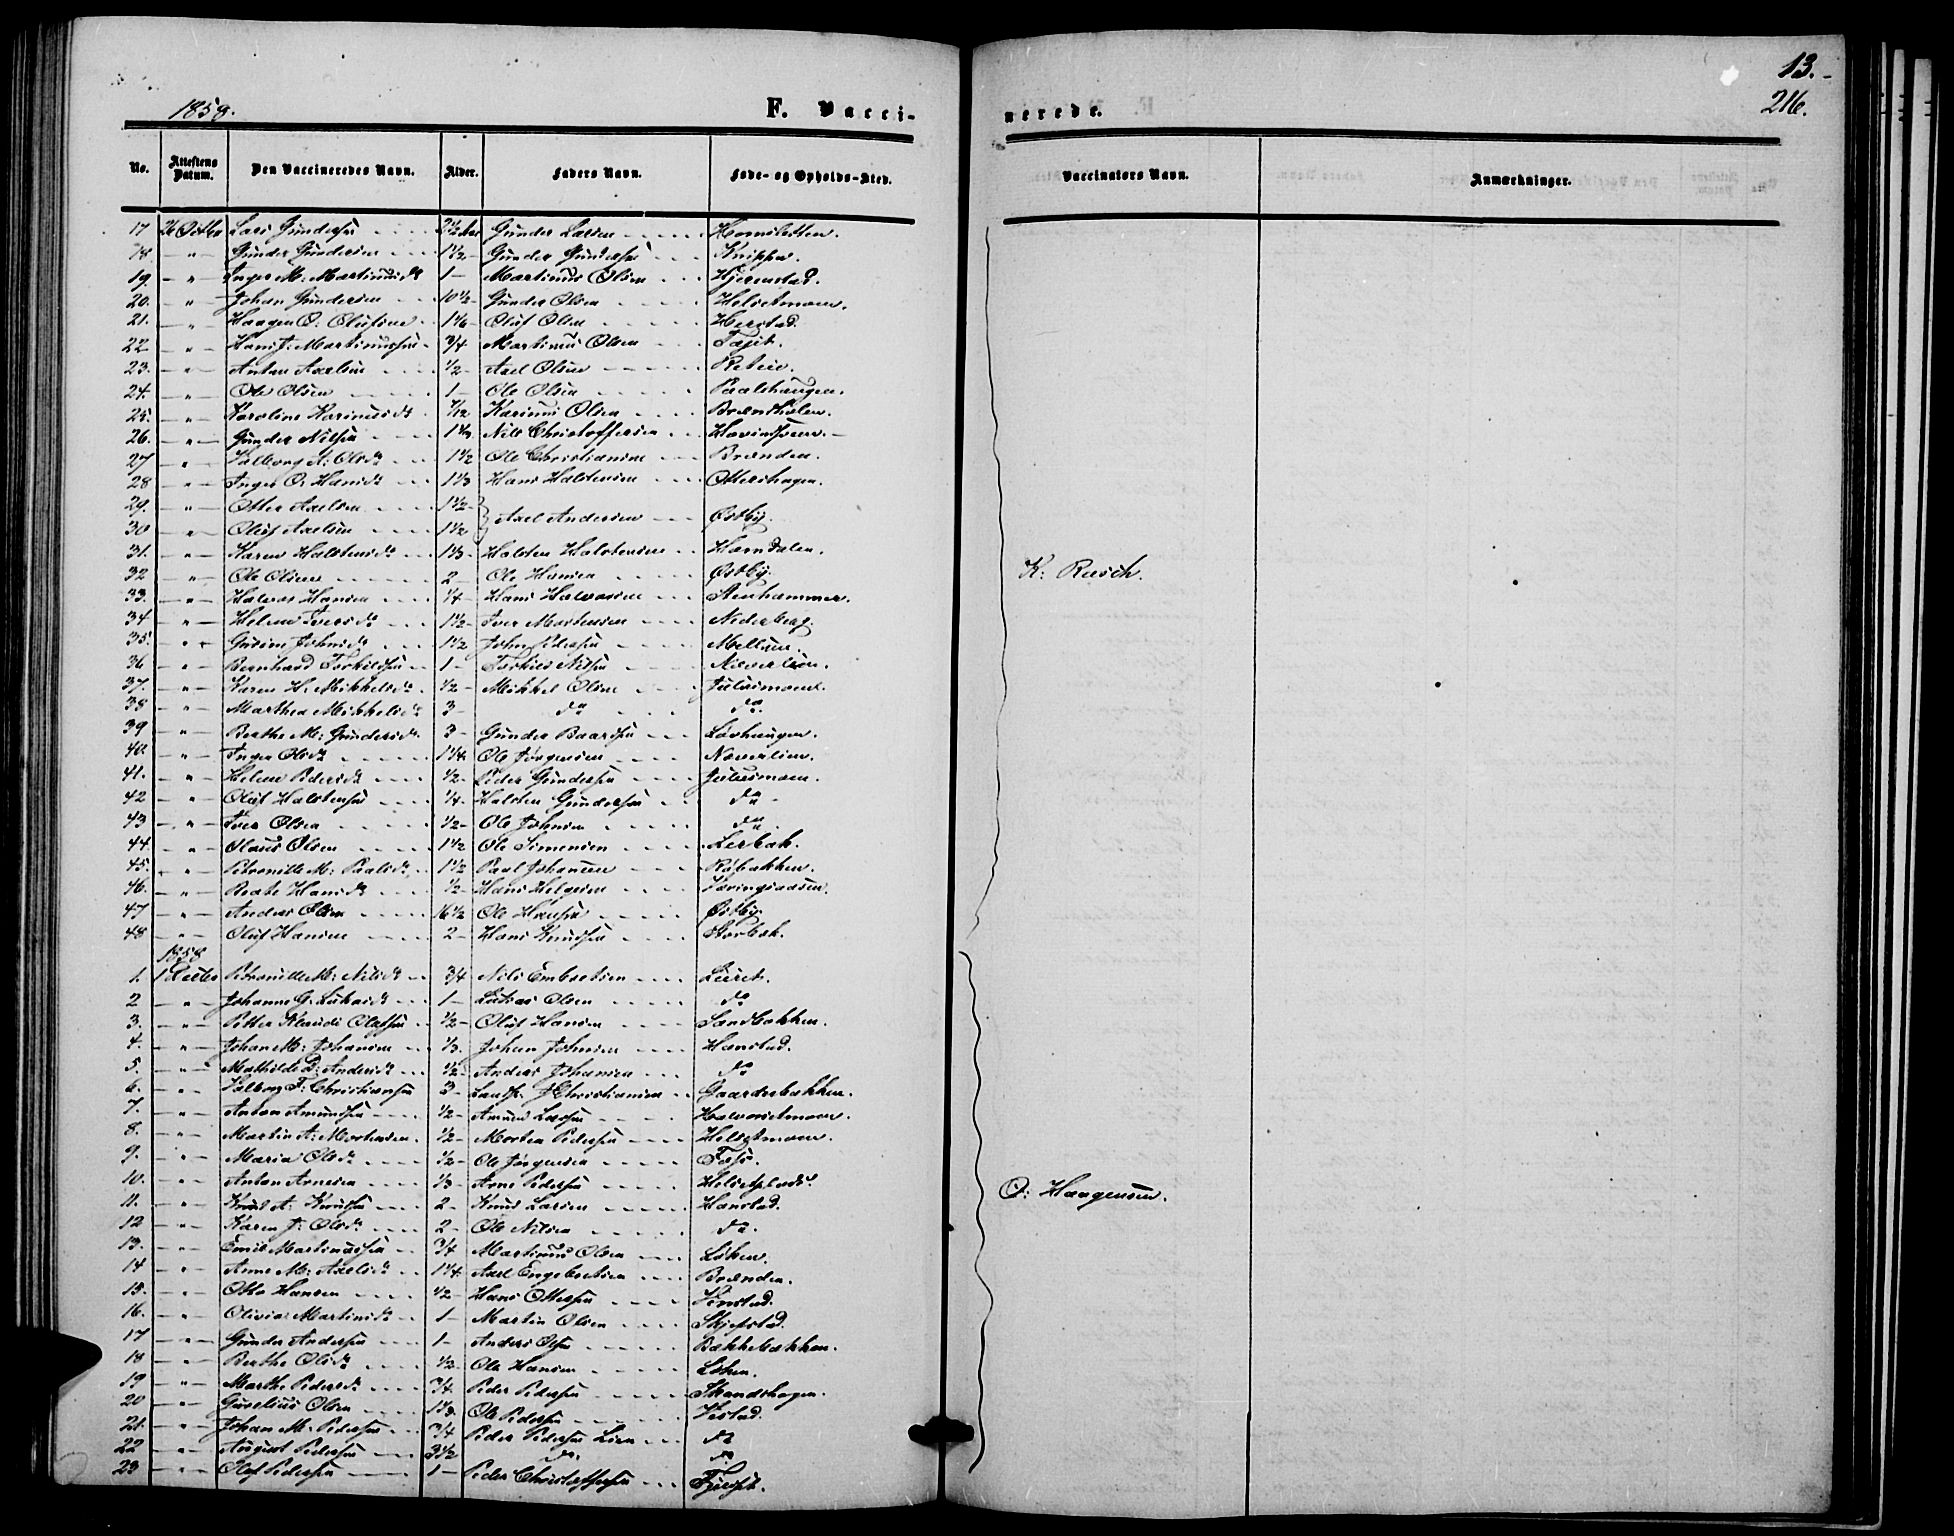 13.
216.
1858.
F. Vacci-
nerede.
No. Attestens Datum. Den Vaccineredes Navn. Alder. Faders Navn. Føde- og Opholds-Sted. Vaccinators Navn. Anmærkninger.
17 26 Octbr Lars Gundersen 2½ Aar Gunder Larsen
18 -"- Gunder Gundersen 1½ Gunder Gundersen Knippen.
19. -"- Inger M. Martinusd. 1- Martinus Olsen Hjerenstad.
20. -"- Johan Gundersen 10½ Gunder Olsen Helsetmoen.
21. -"- Haagen O. Olufsen Oluf Olsen Herstad.
22 -"- Hans J. Martinussen 3/4 Martinus Olsen
23. -"- Anton Axelsen ½ Axel Olsen
24. -"- Ole Olsen 1- Ole Olsen Paalshaugen.
25. -"- Karoline Karinusd. 7/12 Karinus Olsen
26. -"- Gunder Nilsen Nils Christoffersen
27 -"- Valborg A. Olsd. 1½ Ole Christiansen Brænden.
28 -"- Inger O. Hansd. 1⅓ Hans Halstensen Ottershagen.
29. -"- Otter Axelsen 1½ Axel Andersen Østby.
30 -"- Oluf Axelsen 1½
31. -"- Karen Halstensd. 1⅓ Halsten Halstensen Horndalen.
32 -"- Ole Olsen 2 Ole Hansen Østby.
K: Rusch.
33. -"- Halvor Hansen ¼ Hans Halvorsen Stenhammer.
34 -"- Helene Iversd. 1½ Iver Mortensen Nederberg.
35. -"- Gurine Johnsd. 1½ John Pedersen Mellum.
36 -"- Bernhard Torkildsen 1- Torkild Nilsen Næverlien.
37. -"- Karen H. Mikkelsd. ½ Mikkel Olsen Julusmoen.
38 -"- Marthea Mikkelsd. 3- do do
39 -"- Berthe M: Gundersd. 3- Gunder Baardsen Løvhaugen.
40. -"- Inger Olsd. 1¼ Ole Jørgensen Næverlien.
41. -"- Helene Pedersd. ½ Peder Gundersen Julusmoen.
42 -"- Oluf Halstensen ¼ Halsten Gundersen do
43 -"- Iver Olsen ½ Ole Johnsen do
44. -"- Olaus Olsen 1½ Ole Simensen Lerbak.
45. -"- Petronille M: Paalsd. 1½ Paal Johansen Røbakken.
46. -"- Beate Hansd. ½ Hans Helgesen
47 -"- Anders Olsen 16½ Ole Hansen Østby.
48 -"- Oluf Hansen 2- Hans Knudsen Storbæk.
1858
1. 1 Petronille M: Nilsd. 3/4 Nils Embretsen
2 -"- Johanne G. Lukasd. 1- Lukas Olsen do
3. -"- Petter Klaudi Olufsen ½ Oluf Hansen Sandbakken.
4. -"- Johan M: Johansen ⅓ Johan Johnsen Hanstad.
5. -"- Mathilde D: Andersd. ½ Anders Johansen do
6. -"- Valborg T. Christiansen 3- Christiansen Gaardsbakken.
7. -"- Anton Amundsen ½ Amund Larsen Halvorsetmoen.
8. -"- Martin A: Mortensen ½ Morten Pedersen Helsetmoen.
9. -"- Maria Olsd. ½ Ole Jørgensen
10. -"- Anton Arnesen ⅓ Arne Pedersen
O: Haagensen.
11. -"- Knud A: Knudsen 2- Knud Larsen Hanstad.
12 -"- Karen J: Olsd. 2- Ole Nilsen do
13. -"- Emil Martinussen 3/4 Martinus Olsen Løken.
14 -"- Anne M: Axelsd. 1¼ Axel Engebretsen Brænden.
15. -"- Otto Hansen ½ Hans Ottesen Venstad.
16. -"- Olivia Martinsd. 1- Martin Olsen Skjefstad.
17 -"- Gunder Andersen 1- Anders Olsen Bækkebakken.
18 -"- Berthe Olsd. ½ Ole Hansen Løken.
19 -"- Marthe Pedersd. 3/4 Peder Pedersen Strandshagen.
20 -"- Guselius Olsen 1⅓ Ole Pedersen Vestad.
21. -"- Johan M. Pedersen 3/4 Peder Pedersen Lien do
22 -"- August Pedersen 3½ do. do
23 -"- Oluf Pedersen 1- Peder Christoffersen